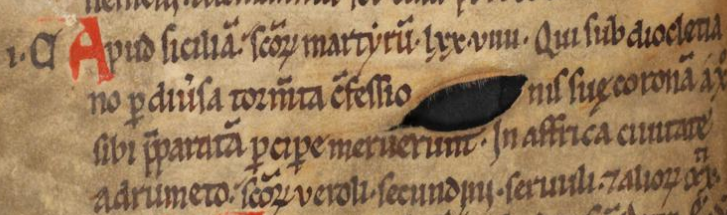 i · G Apud siciliā. scōꝝ martyrū · lxx·viiii · Qui sub diocletia
no ꝑ diūsa torm̄ta c̄fessio nis suę coronā a x̄
sibi p̄paratā ꝑcipe meruerunt · In affrica ciuitate
adrumeto · scōꝝ veroli · secundini · seruuli · ⁊ alioꝝ